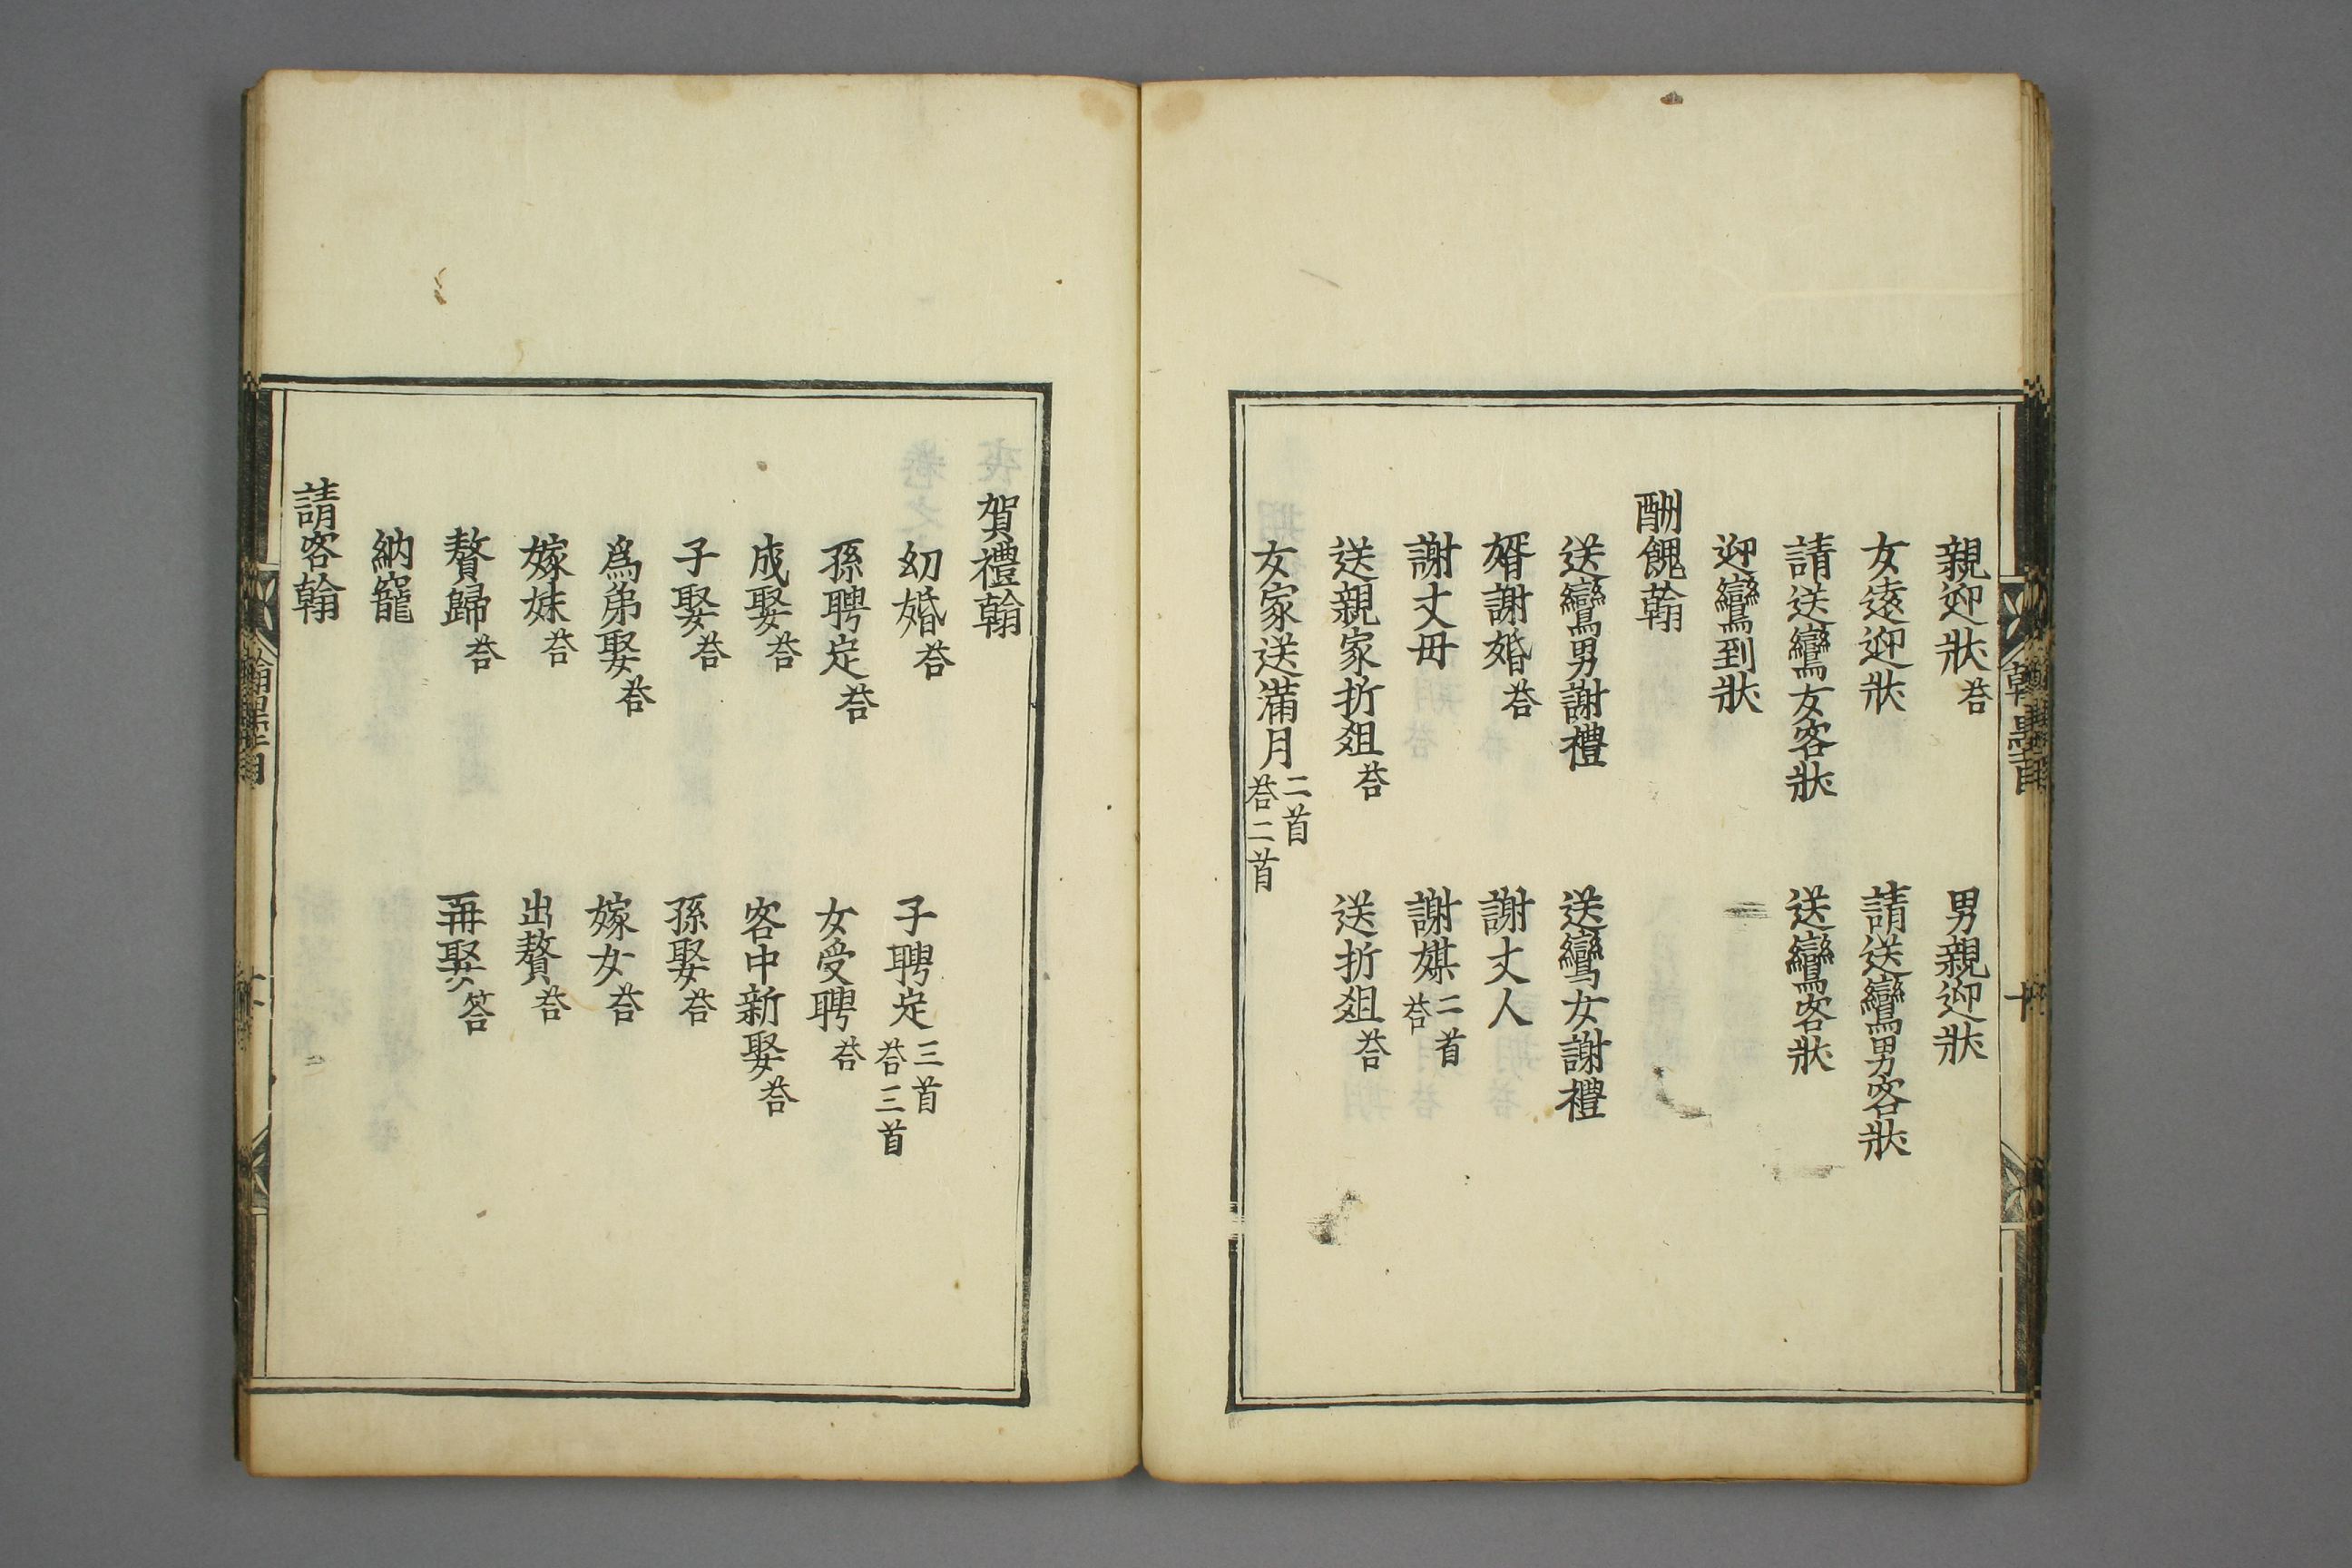 親迎狀 荅 男親迎狀
女遠迎狀 請送鸞男客狀
請送鸞女客狀 送鸞客狀
迎鸞到狀
酬餽翰
送鸞男謝禮 送鸞女謝禮
婿謝婚 荅 謝丈人
謝丈母 謝媒 二首 荅
送親家折俎 荅 送折俎 荅
女家送滿月 二首 荅二首
賀禮翰
幼婚 荅 子聘定 三首 荅三首
孫聘定 荅 女受聘 荅
成娶 荅 客中新娶 荅
子娶 荅 孫娶 荅
爲弟娶 荅 嫁女 荅
嫁妹 荅 出贅 荅
贅歸 荅 再娶 答
納寵
請客翰